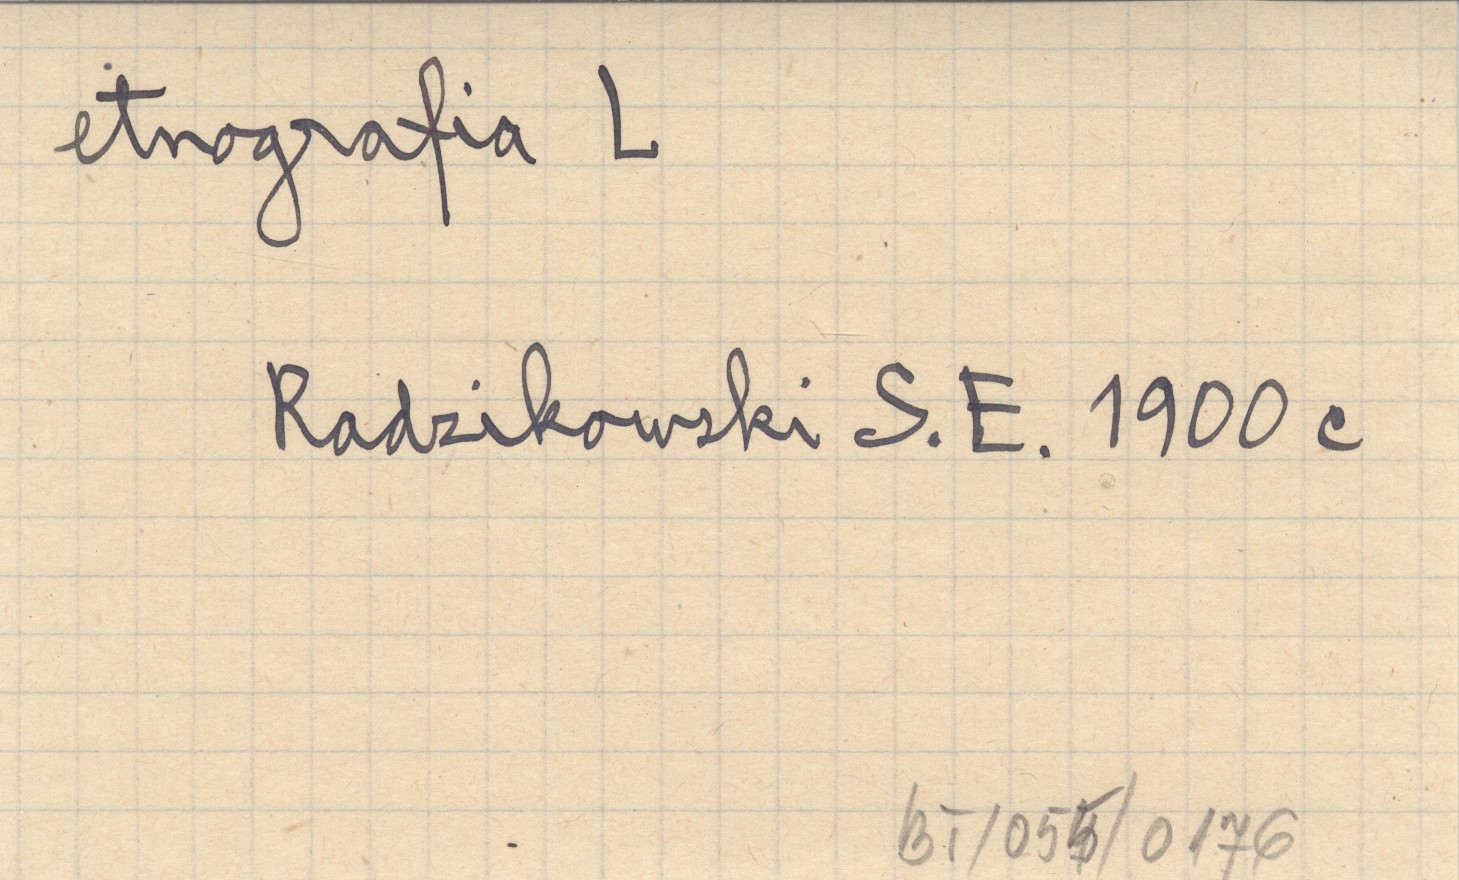 etnografia L
Radzikowski S.E. 1900 c
BI/055/0176